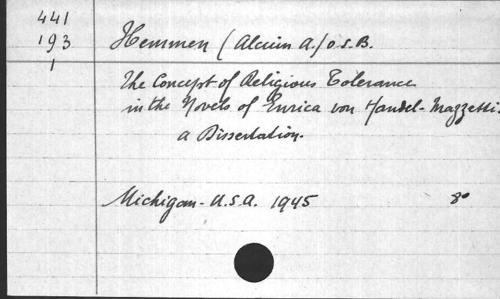 441
193 Hemmen (Alcuin A.) O.S.B.
1
The Concept of Religious Tolerance
in the Novels of Enrica von Handel-Mazzetti.
a Dissertation.
Michigan - U.S.A. 1945 8°